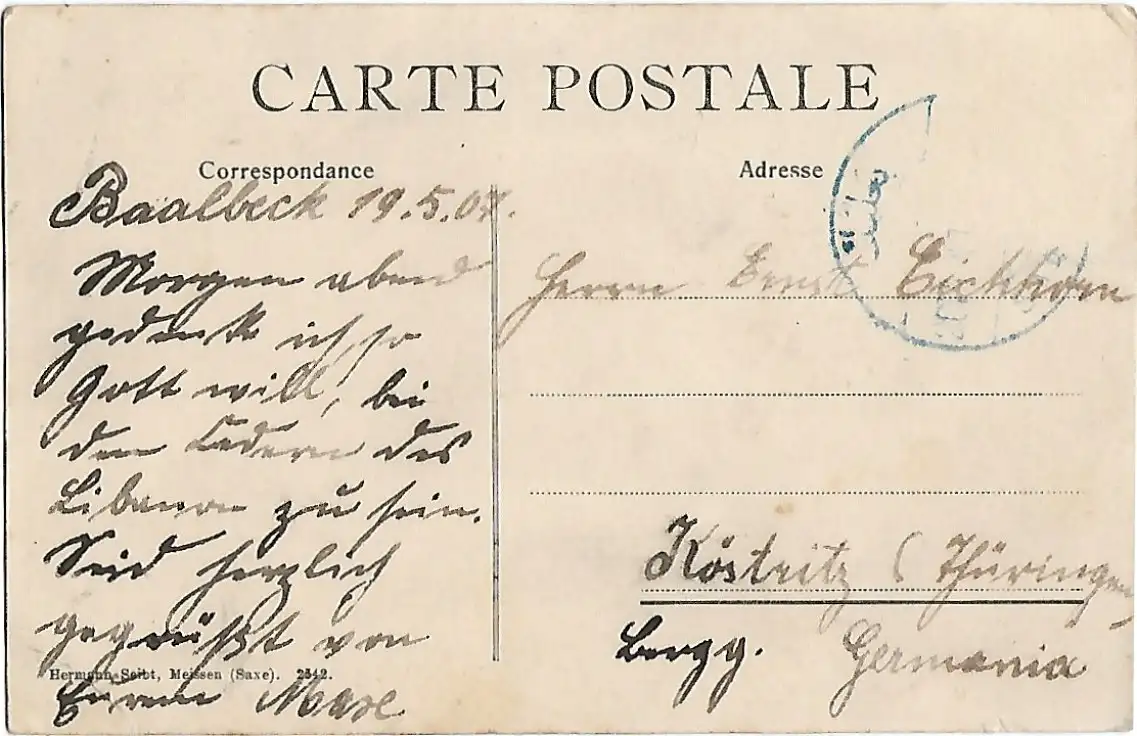 CARTE POSTALE
Correspondance
Baalbeck 19.5.07.
Morgen abend
gedenke ich, so
Gott will, bei
den Cedern des
Libanon zu sein.
Seid herzlich
gegrüßt von
Eurem
Hermann Seibt, Meissen (Saxe). 2542.
Adresse
Herrn Ernst Eichhorn
Köstritz (Thüringen)
Germania